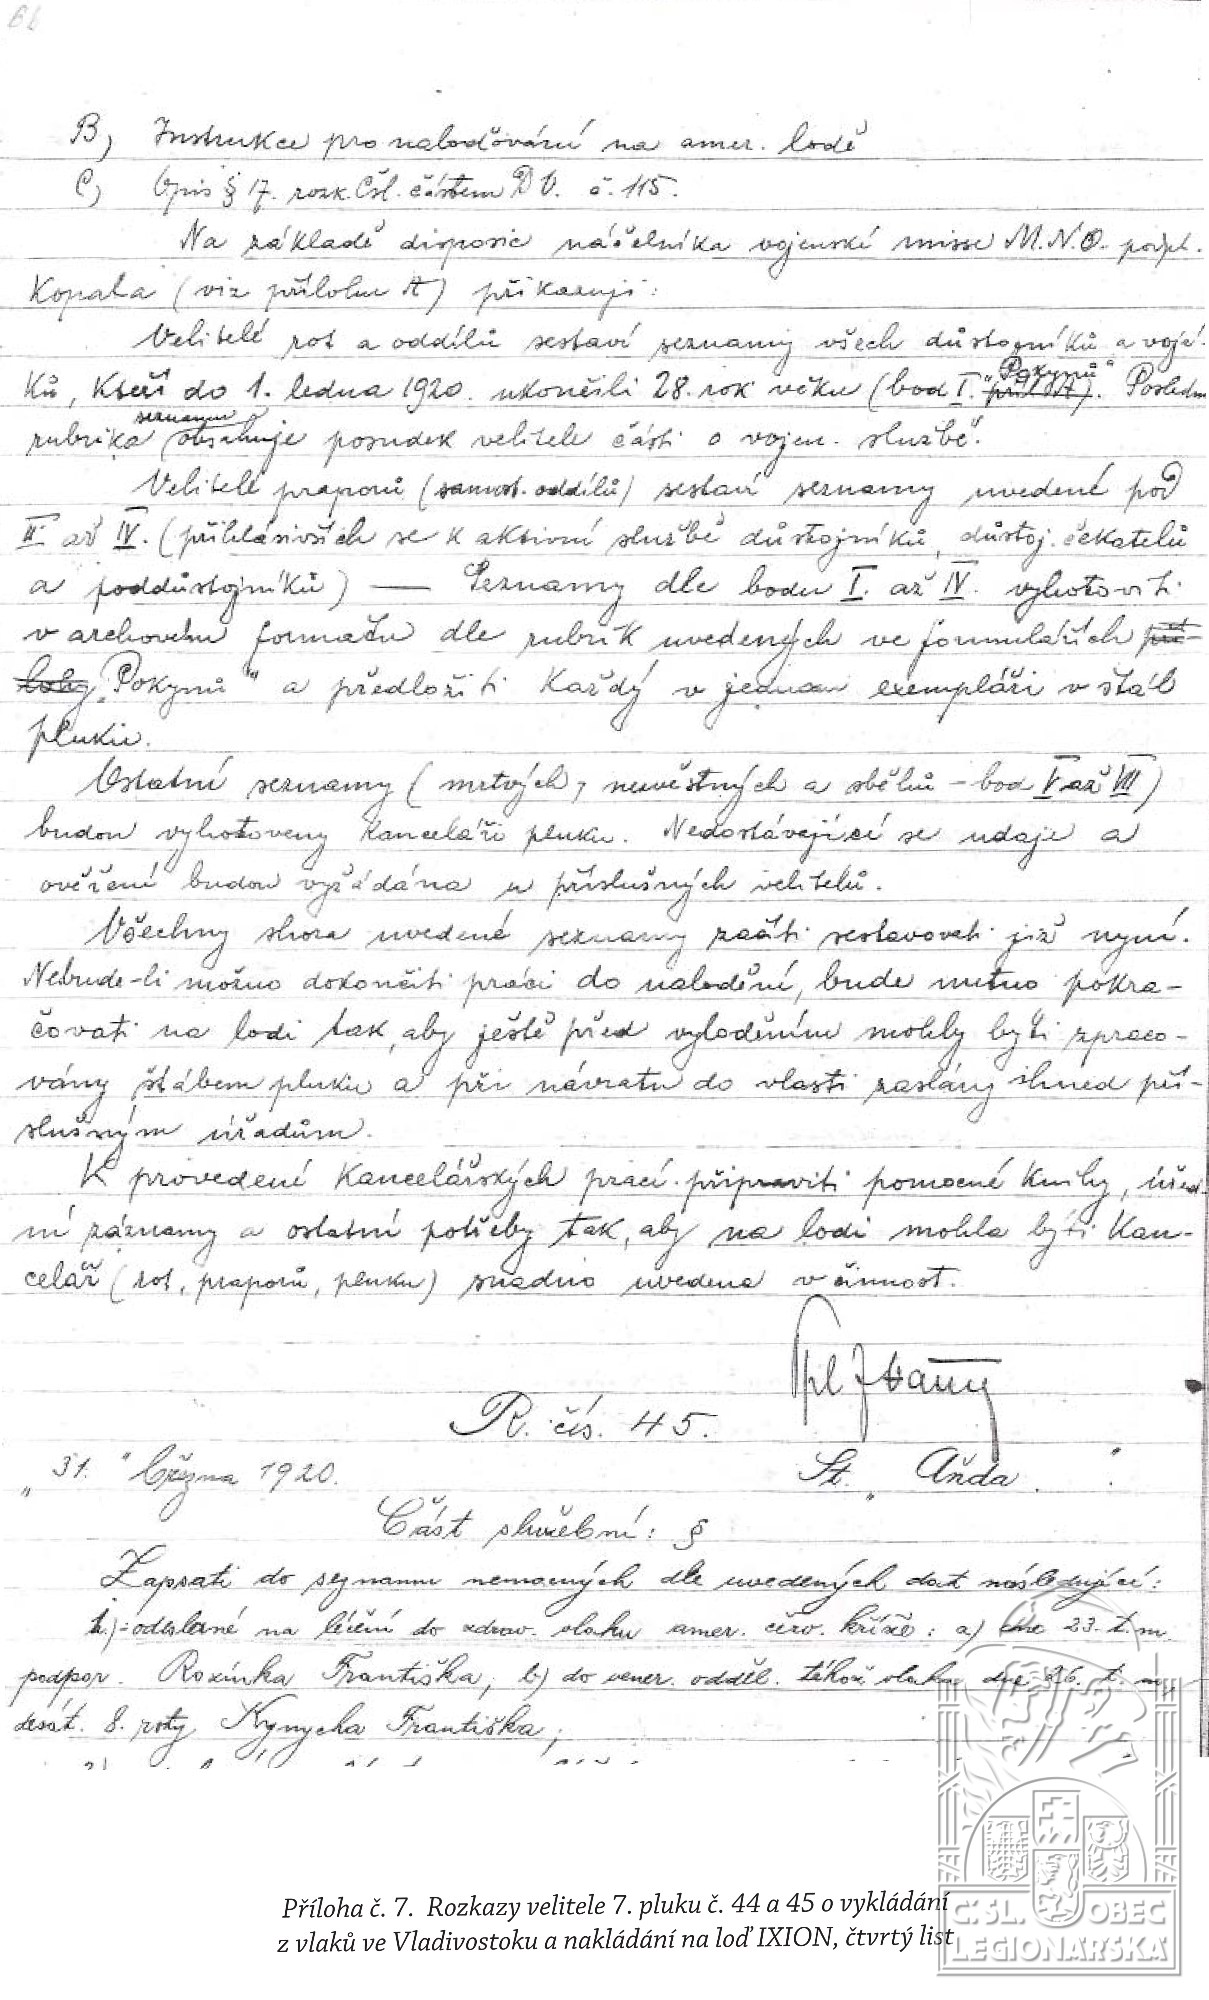 B) Instrukce pro naloďování na amer. lodě
C) Opis § 17. rozk. Čsl. částem D V. č. 115.
Na základě disposic náčelníka vojenské misse M.N.O. podpl.
Kopala (viz přílohu A) přikazuji:
Velitelé rot a oddílů sestaví seznamy všech důstojníků a vojá-
ků, kteří do 1. ledna 1920. ukončili 28. rok věku (bod I. "Pokynů" příl. A). Poslední
rubrika seznamu obsahuje posudek velitele části o vojen. službě.
Velitelé praporů (samost. oddílů) sestaví seznamy uvedené pod
II. až IV. (přihlásivších se k aktivní službě důstojníků, důstoj. čekatelů
a poddůstojníků) — Seznamy dle bodu I. až IV. vyhotoviti
v archovém formátu dle rubrik uvedených ve formulářích pří-
lohy „Pokynů" a předložiti každý v jednom exempláři v štáb
pluku.
Ostatní seznamy (mrtvých, nezvěstných a sběhů – bod V až VII)
budou vyhotoveny kanceláří pluku. Nedostávající se udaje a
ověření budou vyžádána u příslušných velitelů.
Všechny shora uvedené seznamy začíti sestavovati již nyní.
Nebude-li možno dokončiti práci do nalodění, bude nutno pokra-
čovati na lodi tak, aby ještě před vyloděním mohly býti zpraco-
vány štábem pluku a při návratu do vlasti zaslány ihned pří-
slušným úřadům.
K provedení kancelářských prací připraviti pomocné knihy, úřed-
ní záznamy a ostatní potřeby tak, aby na lodi mohla býti kan-
celář (rot, praporů, pluku) snadno uvedena v činnost.
R. čís. 45.
„31." března 1920. St. „Aňda".
Část služební: §
Zapsati do seznamu nemocných dle uvedených dat následující:
1.) odeslané na léčení do zdrav. vlaku amer. červ. kříže: a) dne 23. t.m.
podpor. Rozínka Františka; b) do vener. odděl. téhož vlaku dne 26. t. m.
desát. 8. roty Kynycha Františka;
Příloha č. 7. Rozkazy velitele 7. pluku č. 44 a 45 o vykládání
z vlaků ve Vladivostoku a nakládání na loď IXION, čtvrtý list
Č. SL. OBEC
LEGIONÁŘSKÁ